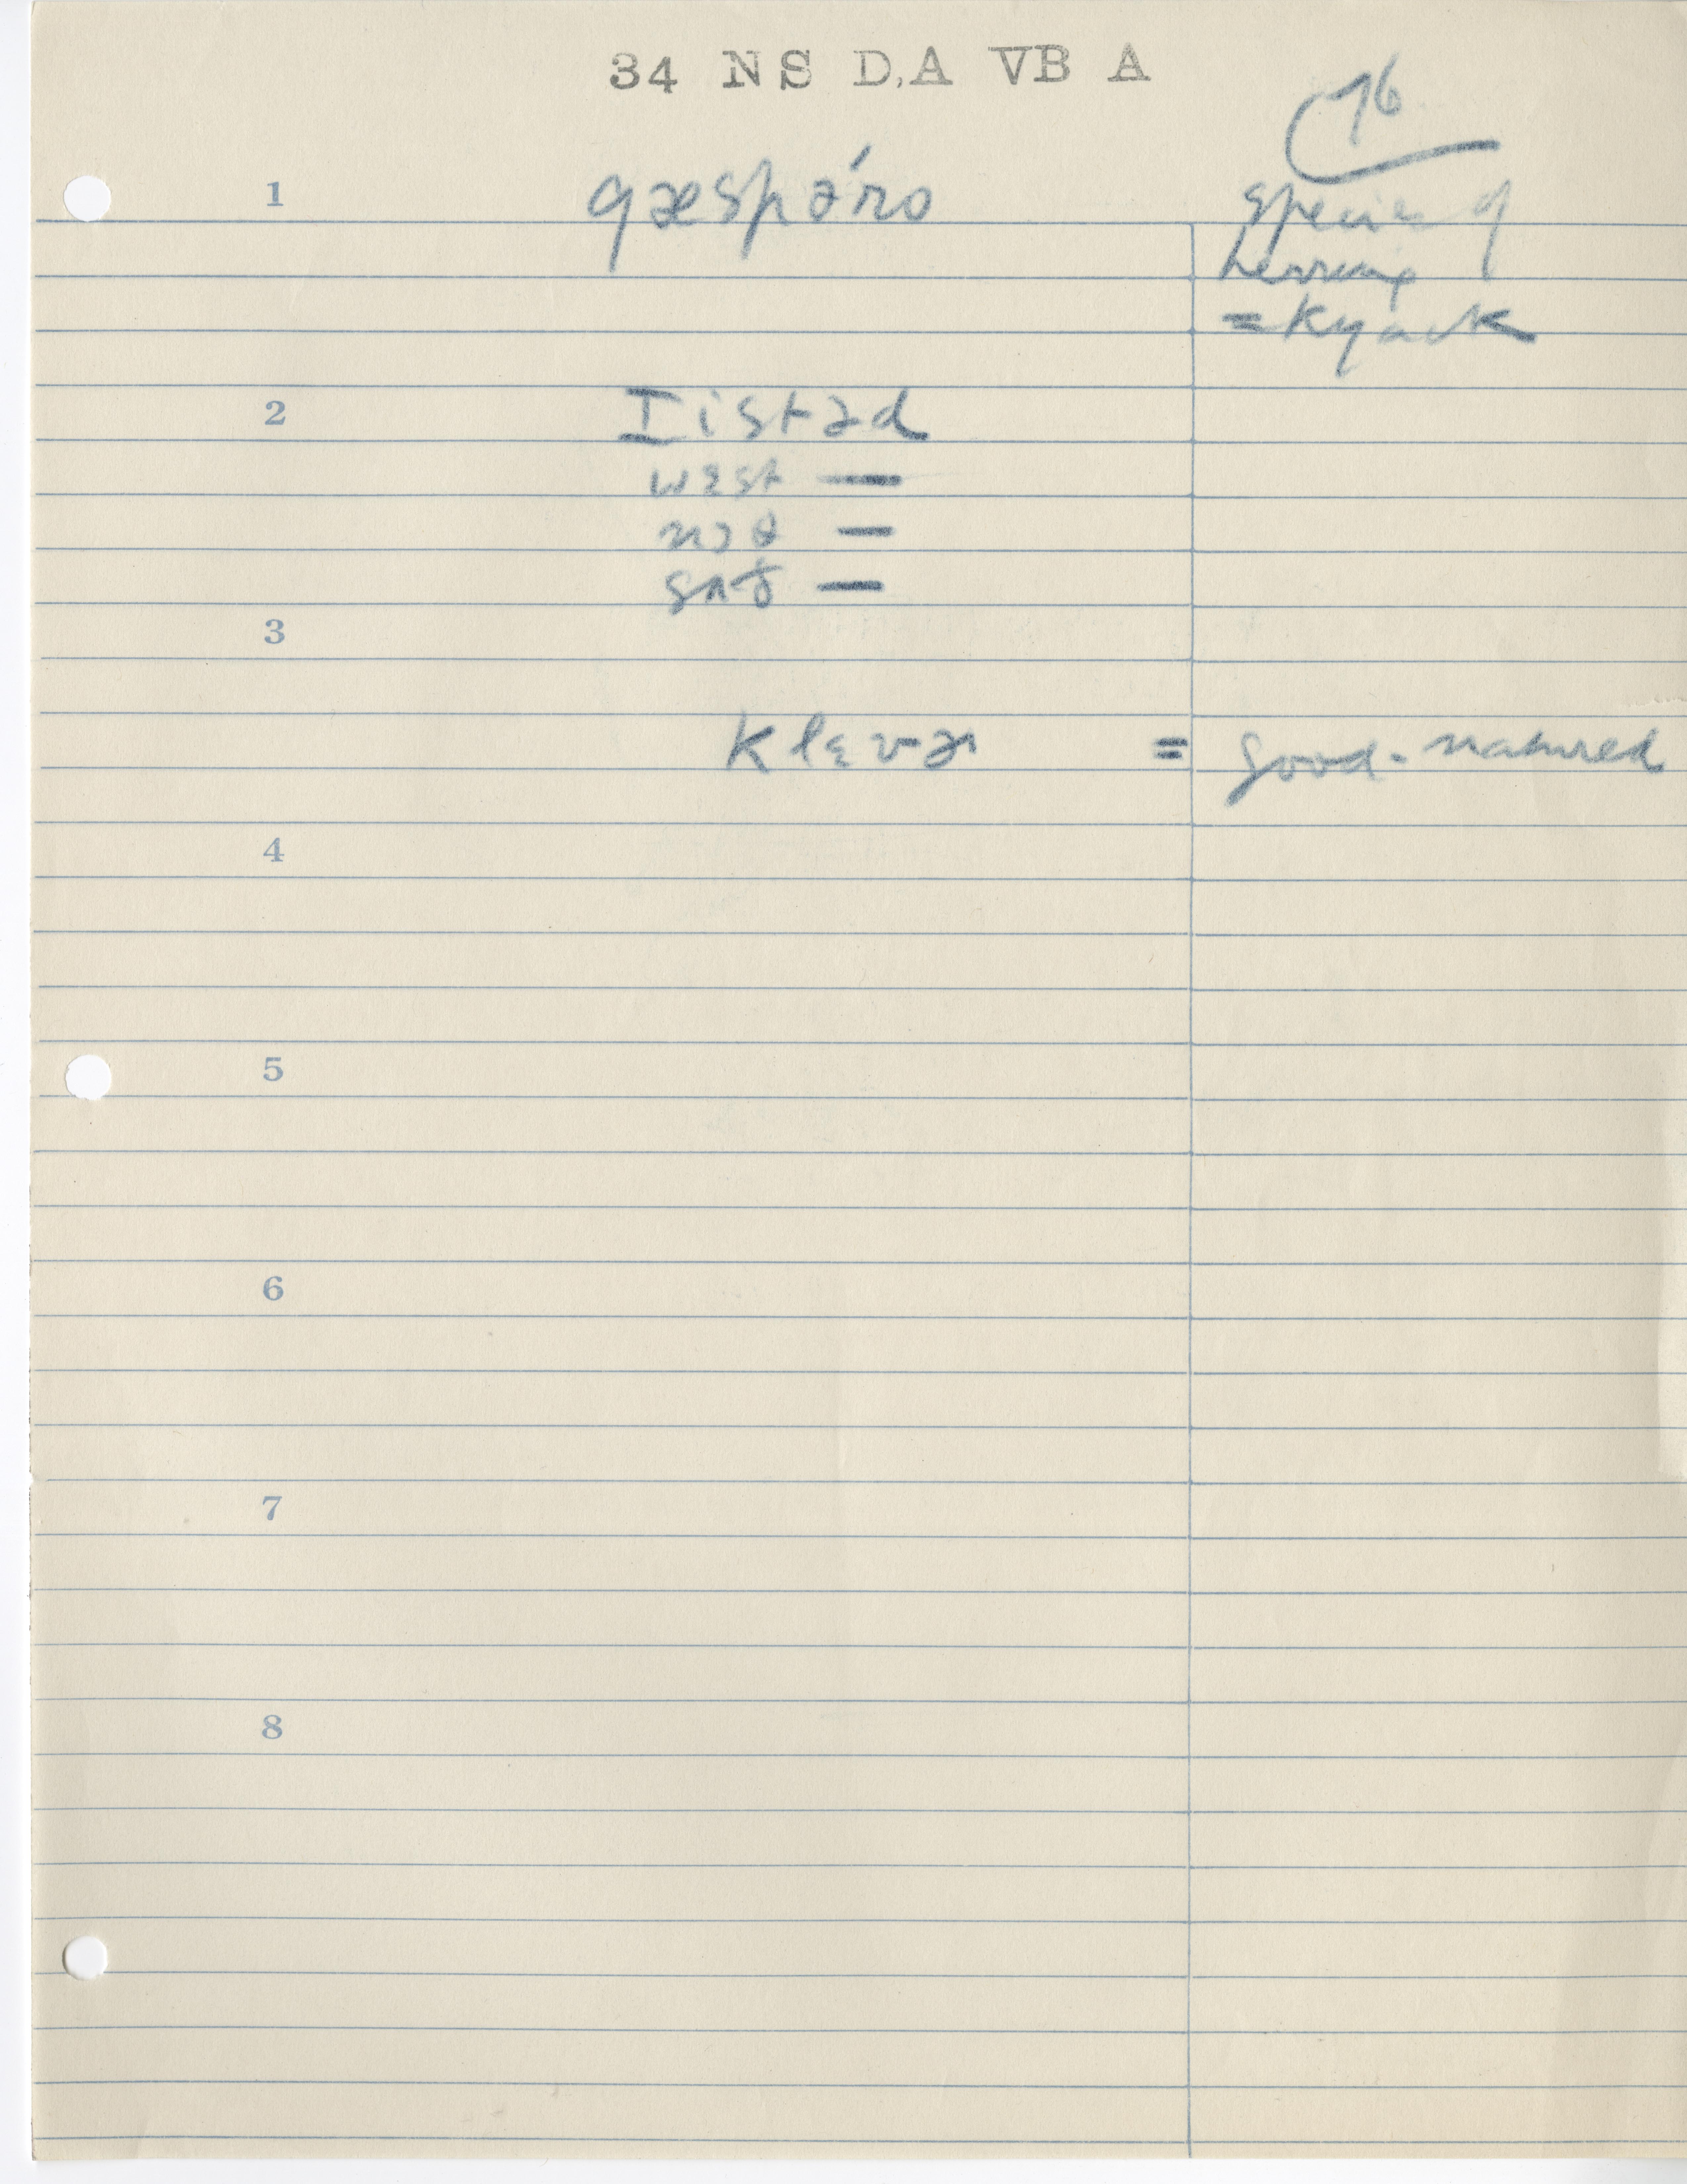 34 NS D.A VB A
76
1 gæspə́ro species of
herring
= kyack
2 Iistəd
wɛst —
nɔθ —
sʌð —
3
klɛvɚ = good-natured
4
5
6
7
8